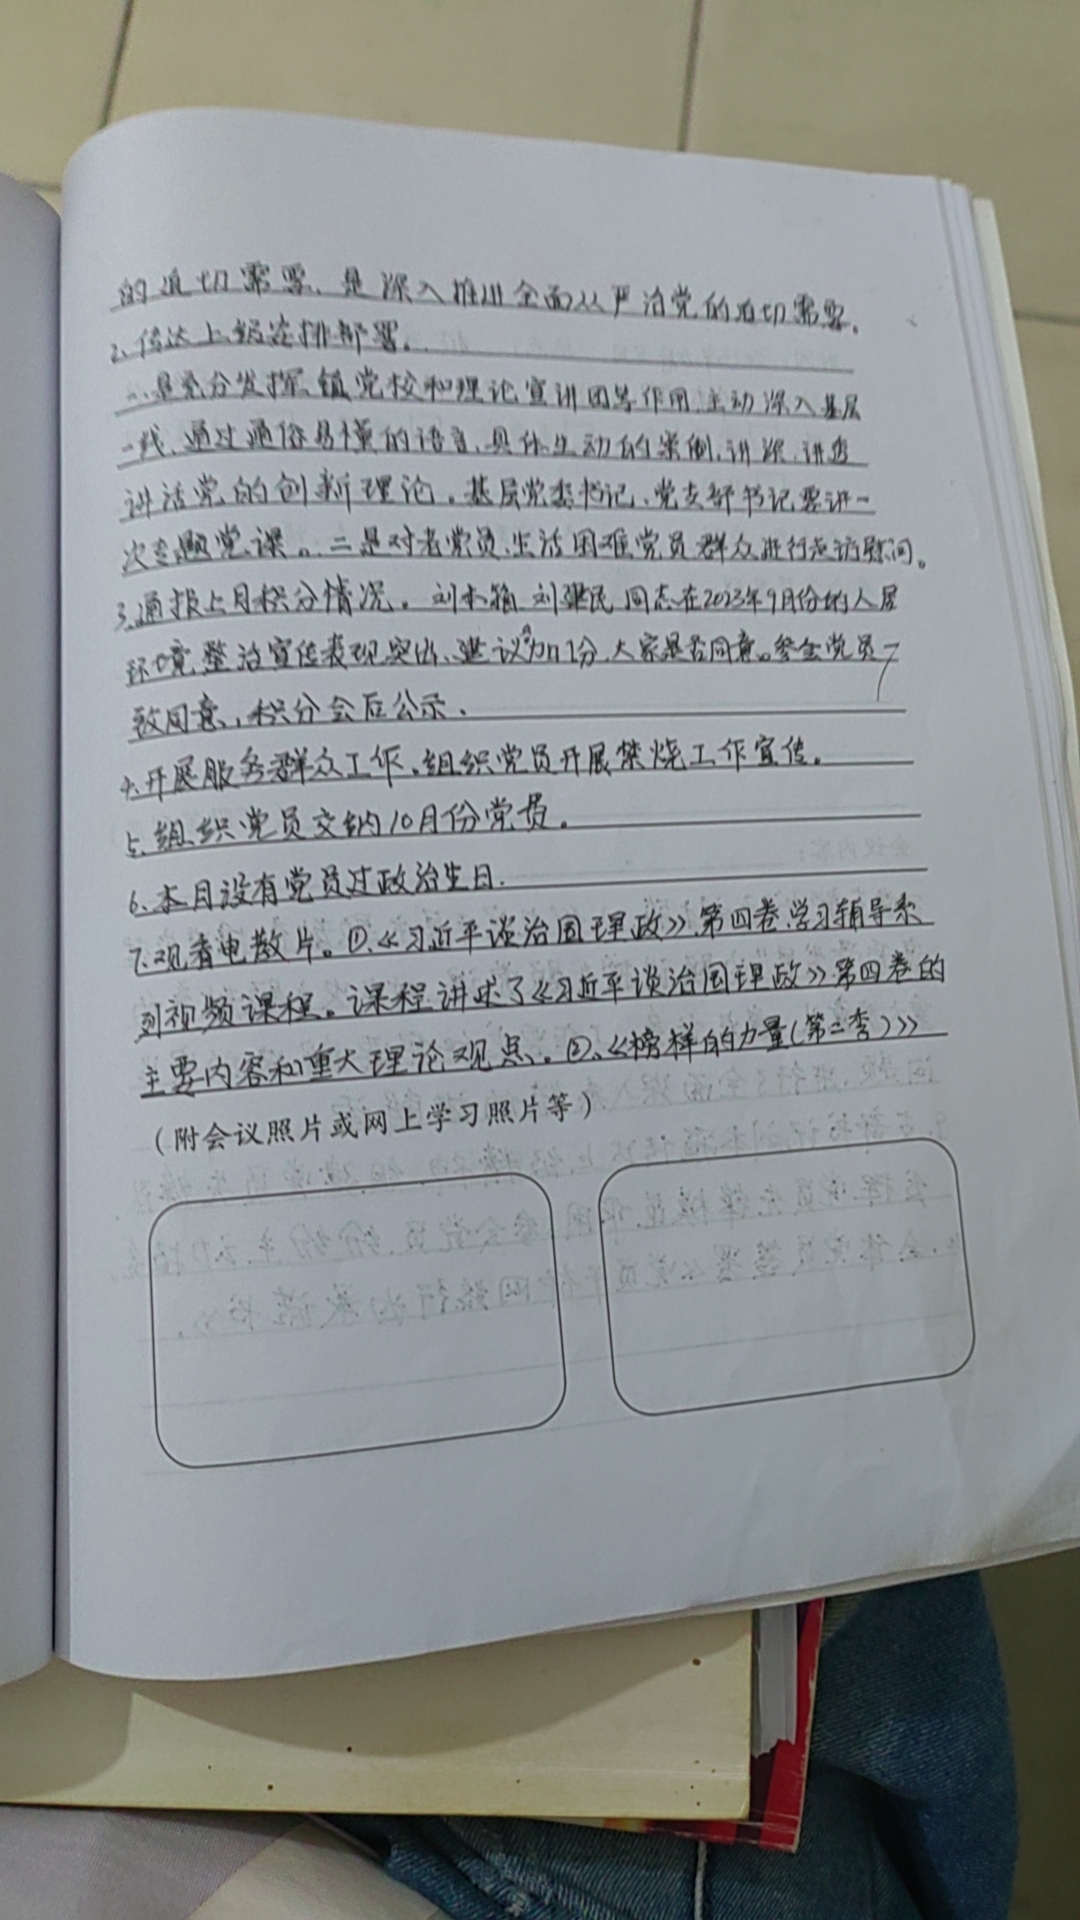 的迫切需要,是深入推进全面从严治党的迫切需要。
2、传达上级安排部署。
一是充分发挥镇党校和理论宣讲团等作用,主动深入基层
一线,通过通俗易懂的语言,具体生动的案例,讲深、讲透
讲活党的创新理论。基层党委书记、党支部书记要讲一
次专题党课。二是对老党员、生活困难党员群众进行走访慰问。
3、通报上月积分情况。刘本 刘建民同志在2023年9月份的人居
环境整治宣传表现突出,建议加1分,大家是否同意。参会党员一
致同意,积分会后公示。
4、开展服务群众工作,组织党员开展禁烧工作宣传。
5、组织党员交纳10月份党费。
6、本月没有党员过政治生日.
7、观看电教片。①、《习近平谈治国理政》第四卷学习辅导系
列视频课程。课程讲述了《习近平谈治国理政》第四卷的
主要内容和重大理论观点。②、《榜样的力量(第二季)》
(附会议照片或网上学习照片等)